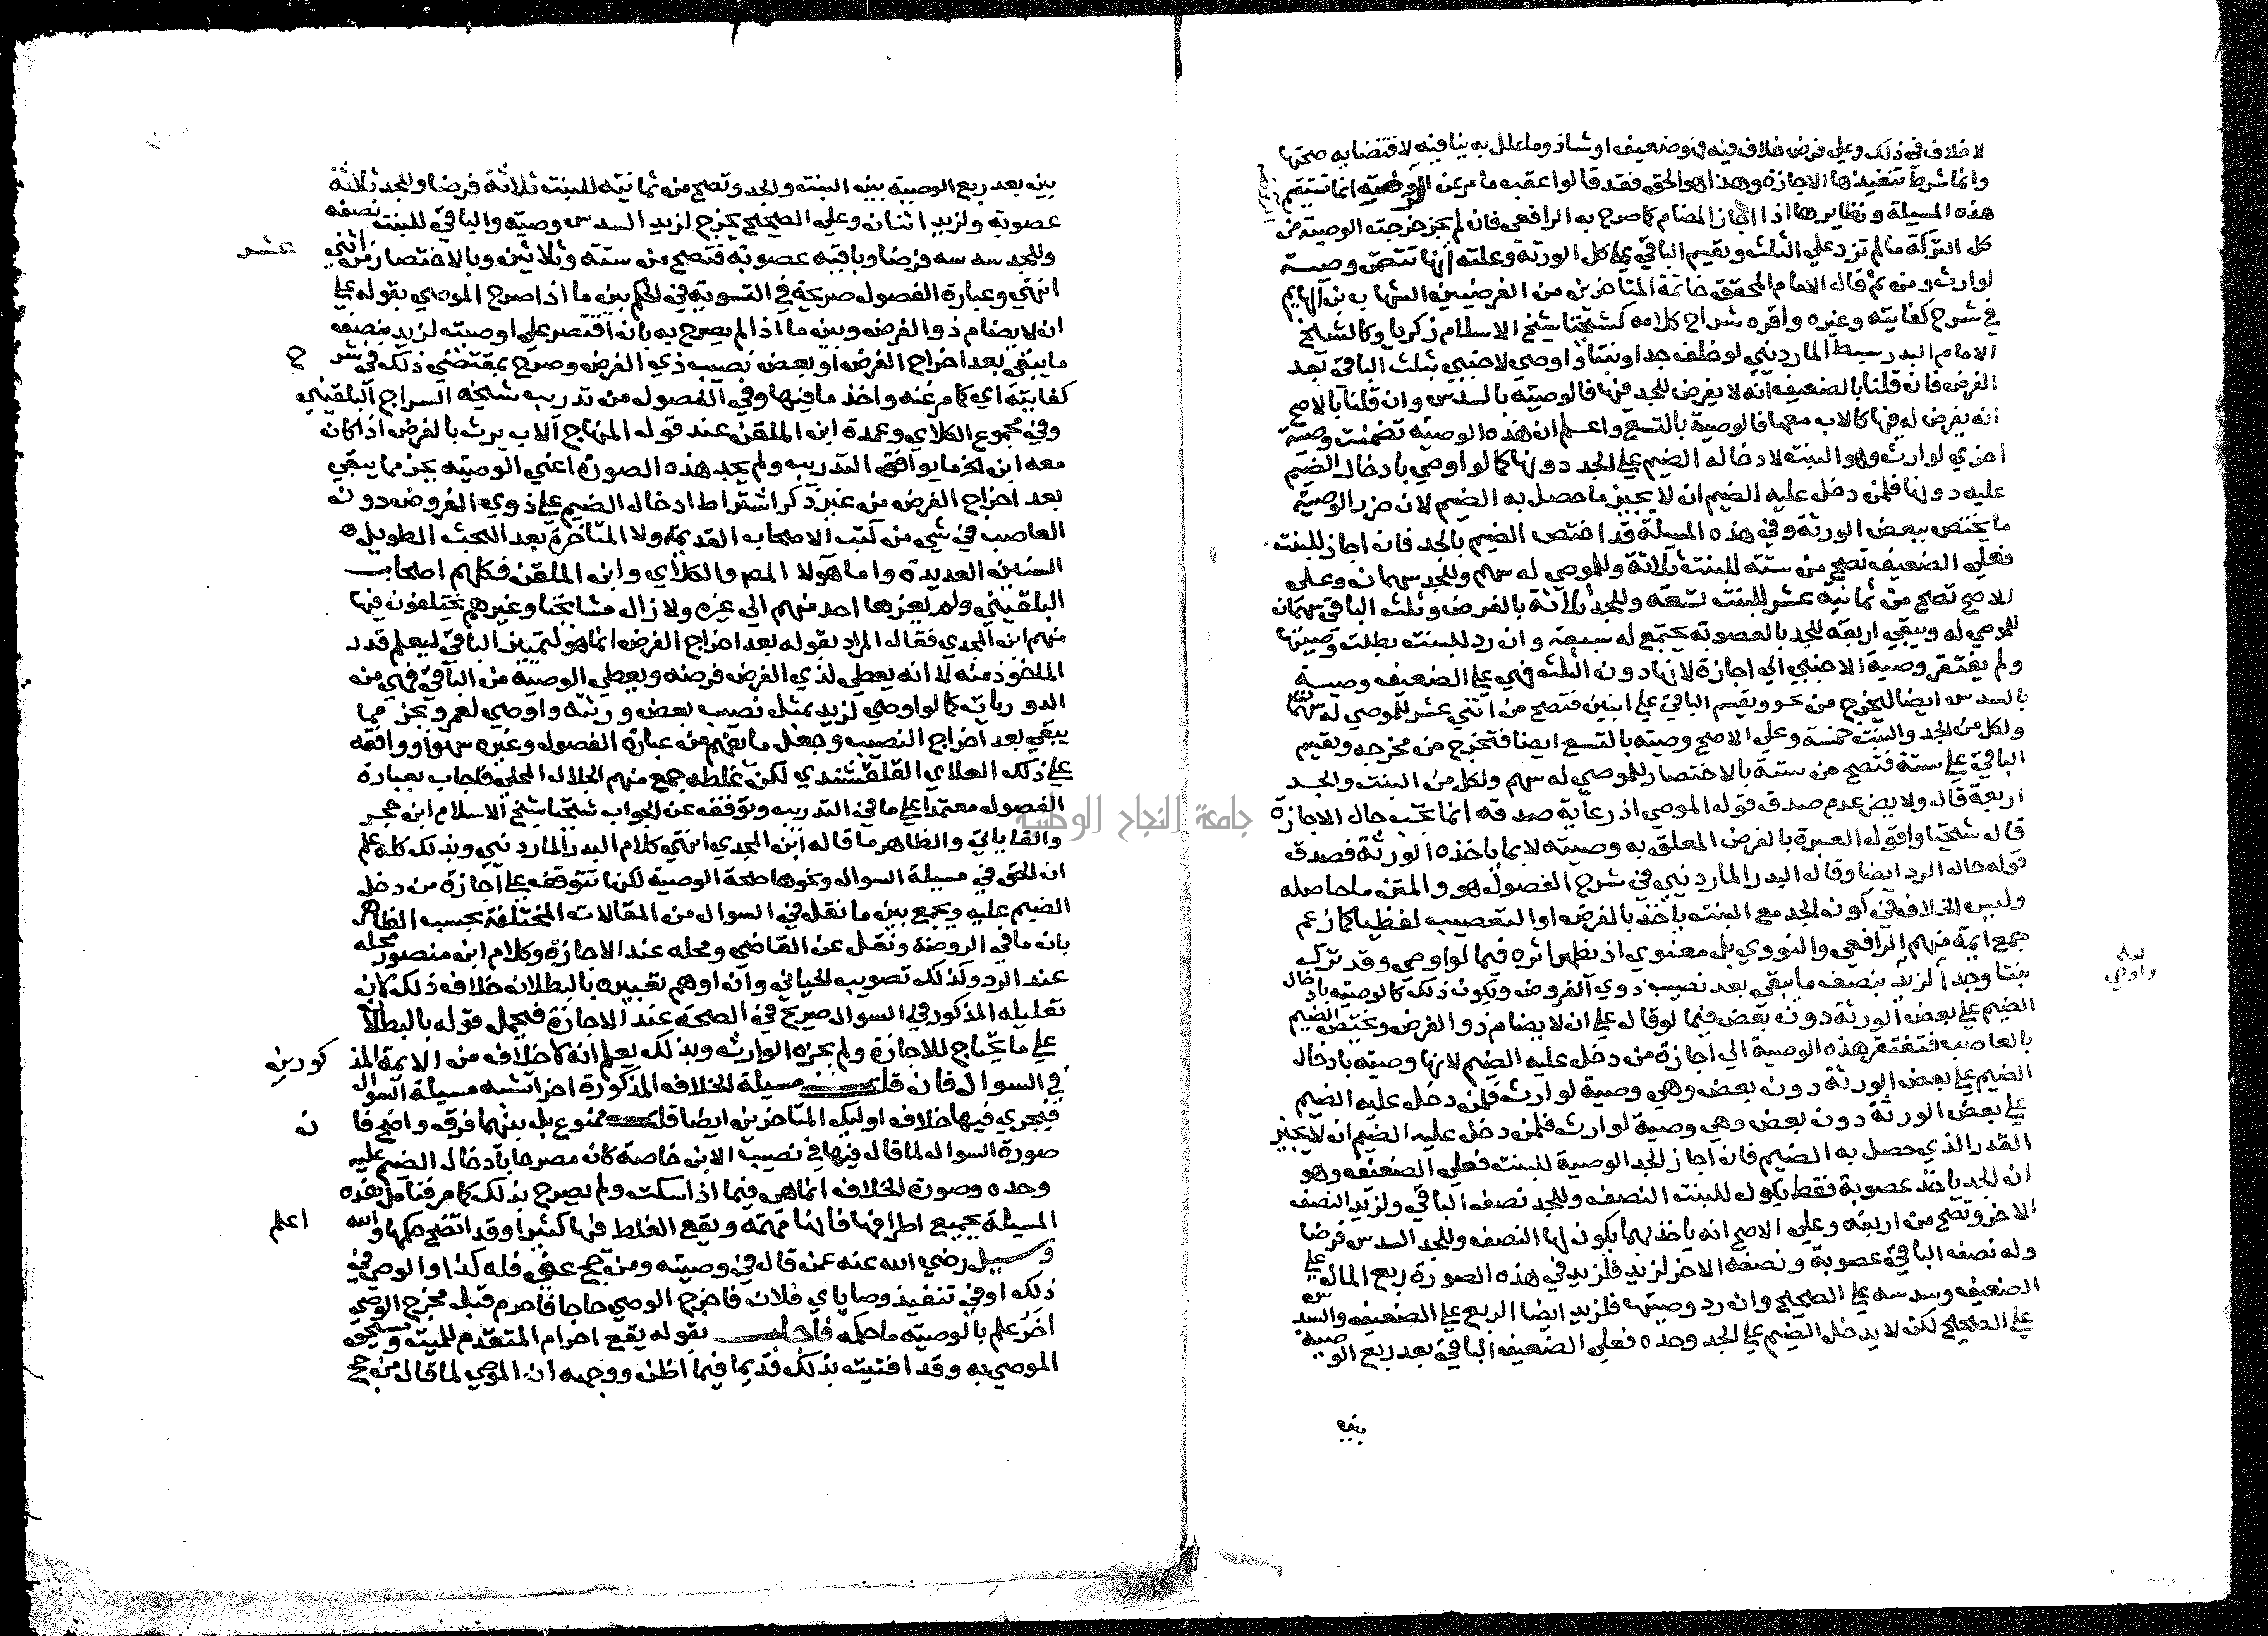 لا خلاف في ذلك وعلي فرض خلاف فيه فهو ضعيف او شاذ وما علل به ينافيه لاقتضايه صحتها
وانما شرط تنفيذها الاجازة وهذا هو الحق فقد قالوا عقب ما مر عن الروضة انما تستقيم
هذه المسيلة ونظايرها اذا اجاز المضام كما صرح به الرافعي فان لم يجز خرجت الوصية من
كل التركة ما لم تزد علي الثلث ويقسم الباقي علي كل الورثة وعلته انها تتضمن وصية
لوارث ومن ثم قال الامام المحقق خاتمة المتاخرين من الفرضيين الشهاب بن الهايم
في شرح كفايته وغيره واقره شراح كلامه كشيخنا شيخ الاسلام زكريا وكالشيخ
الامام البدر سبط المارديني لو خلف جدا وبنتا واوصي لاجنبي بثلث الباقي بعد
الفرض فان قلنا بالضعيف انه لا يفرض للجد فيها فالوصية بالسدس وان قلنا بالاصح
انه يفرض له فيها كالاب معها فالوصية بالتسع واعلم ان هذه الوصية تضمنت وصية
اخري لوارث وهو البنت لادخاله الضيم علي الجد دونها كما لو اوصي بادخال الضيم
عليه دونها فلمن دخل عليه الضيم ان لا يجيز ما حصل به الضيم لان ضرر الوصية
ما يختص ببعض الورثة وفي هذه المسيلة قد اختص الضيم بالجد فان اجاز للبنت
فعلي الضعيف تصح من ستة للبنت ثلاثة وللموصي له سهم وللجد سهمان وعلي
الاصح تصح من ثمانية عشر للبنت تسعة وللجد ثلاثة بالفرض وثلث الباقي سهمان
للموصي له ويبقي اربعة للجد بالعصوبة يجتمع له سبعة وان رد للبنت بطلت وصيتها
ولم يفتقر وصية الاجنبي الي اجازة لانها دون الثلث فهي علي الضعيف وصية
بالسدس ايضا ليخرج من نحو ويقسم الباقي علي اثنين فتصح من اثني عشر للموصي له سهمان
ولكل من الجد والبنت خمسة وعلي الاصح وصية بالتسع ايضا فتخرج من مخرجه ويقسم
الباقي علي ستة فتصح من ستة بالاختصار للموصي له سهم ولكل من البنت والجد
اربعة قال ولا يضر عدم صدق قوله الموصي اذ رعاية صدقه انما تجب حال الاجازة
قال شيخنا واقول العبرة بالفرض المعلق به وصيته لا بما ياخذه الورثة فصدق
قوله حال الرد ايضا وقال البدر المارديني في شرح الفصول هو والمتن ما حاصله
وليس الخلاف في كون الجد مع البنت ياخذ بالفرض او التعصيب لفظيا كما زعم
جمع ايمة منهم الرافعي والنووي بل معنوي اذ يظهر اثره فيما لو اوصي وقد ترك
لعله واوصي
بنتا وجدا لزيد بنصف ما يبقي بعد نصيب ذوي الفروض ويكون ذلك كالوصية بادخال
الضيم علي بعض الورثة دون بعض فيما لو قال علي ان لا يضام ذو الفرض ويختص الضيم
بالعاصب فتفتقر هذه الوصية الي اجازة من دخل عليه الضيم لانها وصية بادخال
الضيم علي بعض الورثة دون بعض وهي وصية لوارث فلمن دخل عليه الضيم
علي بعض الورثة دون بعض وهي وصية لوارث فلمن دخل عليه الضيم ان لا يجيز
القدر الذي حصل به الضيم فان اجاز الجد الوصية للبنت فعلي الضعيف وهو
ان الجد ياخذ عصوبة فقط يكون للبنت النصف وللجد نصف الباقي ولزيد النصف
الاخر وتصح من اربعة وعلي الاصح انه ياخذ بهما يكون لها النصف وللجد السدس فرضا
وله نصف الباقي عصوبة ونصفه الاخر لزيد فلزيد في هذه الصورة ربع المال علي
الضعيف وسدسه علي الصحيح وان رد وصيتها فلزيد ايضا الربع علي الضعيف والسدس
علي الصحيح لكن لا يدخل الضيم علي الجد وحده فعلي الضعيف الباقي بعد ربع الوصية
بينه
بين بعد ربع الوصية بين البنت والجد وتصح من ثمانية للبنت ثلاثة فرضا وللجد ثلاثة
عصوبة ولزيد اثنان وعلي الصحيح يخرج لزيد السدس وصية والباقي للبنت نصفه
وللجد سدسه فرضا وباقيه عصوبة فتصح من ستة وثلاثين وبالاختصار من اثني عشر
انتهي وعبارة الفصول صريحة في التسوية في الحكم بين ما اذا صرح الموصي بقوله علي
ان لا يضام ذو الفرض وبين ما اذا لم يصرح به بان اقتصر علي اوصيت لزيد بنصف
ما يبقي بعد اخراج الفرض او بعض نصيب ذي الفرض وصرح بمقتضي ذلك في شرح
كفايته اي كما مر عنه واخذ ما فيها وفي الفصول من تدريب شيخه السراج البلقيني
وفي مجموع الكلاي وعمدة ابن الملقن عند قول المنهاج الاب يرث بالفرض اذا كان
معه ابن الخ ما يوافق التدريب ولم يجد هذه الصورة اعني الوصية بجزء مما يبقي
بعد اخراج الفرض من غير ذكر اشتراط ادخال الضيم علي ذوي الفروض دون
العاصب في شي من كتب الاصحاب القديمة ولا المتاخرة بعد البحث الطويل
السنين العديدة واما هولا المص والكلاي وابن الملقن فكلهم اصحاب
البلقيني ولم يعزها احد منهم الي غيره ولا زال مشايخنا وغيرهم يختلفون فيها
منهم ابن المجدي فقال المراد بقوله بعد اخراج الفرض انما هو لتمييز الباقي ليعلم قدر
الماخوذ منه لا انه يعطي لذي الفرض فرضه ويعطي الوصية من الباقي فهي من
الدوريات كما لو اوصي لزيد بمثل نصيب بعض ورثته واوصي لعمرو بجزء مما
يبقي بعد اخراج النصيب وجعل ما يفهم من عبارة الفصول وغيره سهوا ووافقه
علي ذلك العلاي القلقشندي لكن غلطه جمع منهم الجلال المحلي فاجاب بعبارة
الفصول معتمدا علي ما في التدريب وتوقف عن الجواب شيخنا شيخ الاسلام ابن حجر
والقاياتي والظاهر ما قاله ابن المجدي انتهي كلام البدر المارديني وبذلك كله علم
ان الحق في مسيلة السوال ونحوها صحة الوصية لكنها تتوقف علي اجازة من دخل
الضيم عليه ويجمع بين ما نقل في السوال من المقالات المختلفة بحسب الظاهر
بان ما في الروضة ونقل عن القاضي ومحله عند الاجازة وكلام ابن منصور محله
عند الرد وكذلك تصويب الحياني وان اوهم تعبيره بالبطلان خلاف ذلك لان
تعليله المذكور في السوال صريح في الصحة عند الاجازة فيحمل قوله بالبطلان
علي ما يحتاج للاجازة ولم يجزه الوارث وبذلك يعلم انه لا خلاف من الايمة المذكورين
في السوال فان قلت مسيلة الخلاف المذكورة اخرا تشبه مسيلة السوال
فيجري فيها خلاف اوليك المتاخرين ايضا قلت ممنوع بل بينهما فرق واضح فان
صورة السوال لما قال فيها في نصيب الابن خاصة كان مصرحا بادخال الضيم عليه
وحده وصورة الخلاف انما هي فيما اذا سكت ولم يصرح بذلك كما مر فتامل هذه
المسيلة بجميع اطرافها فانها مهمة ويقع الغلط فيها كثيرا وقد اتضح حكمها والله اعلم
وسيل رضي الله عنه عمن قال في وصيته ومن حج عني فله كذا او الوصي في
ذلك او في تنفيذ وصاياي فلان فاخرج الوصي حاجا فاحرم قبل مخرج الوصي
اخر علم بالوصية ما حكمه فاجاب بقوله يقع احرام المتقدم للميت ويستحق
الموصي به وقد افتيت بذلك قديما فيما اظن ووجهه ان الموصي لما قال من حج
جامعة النجاح الوطنية